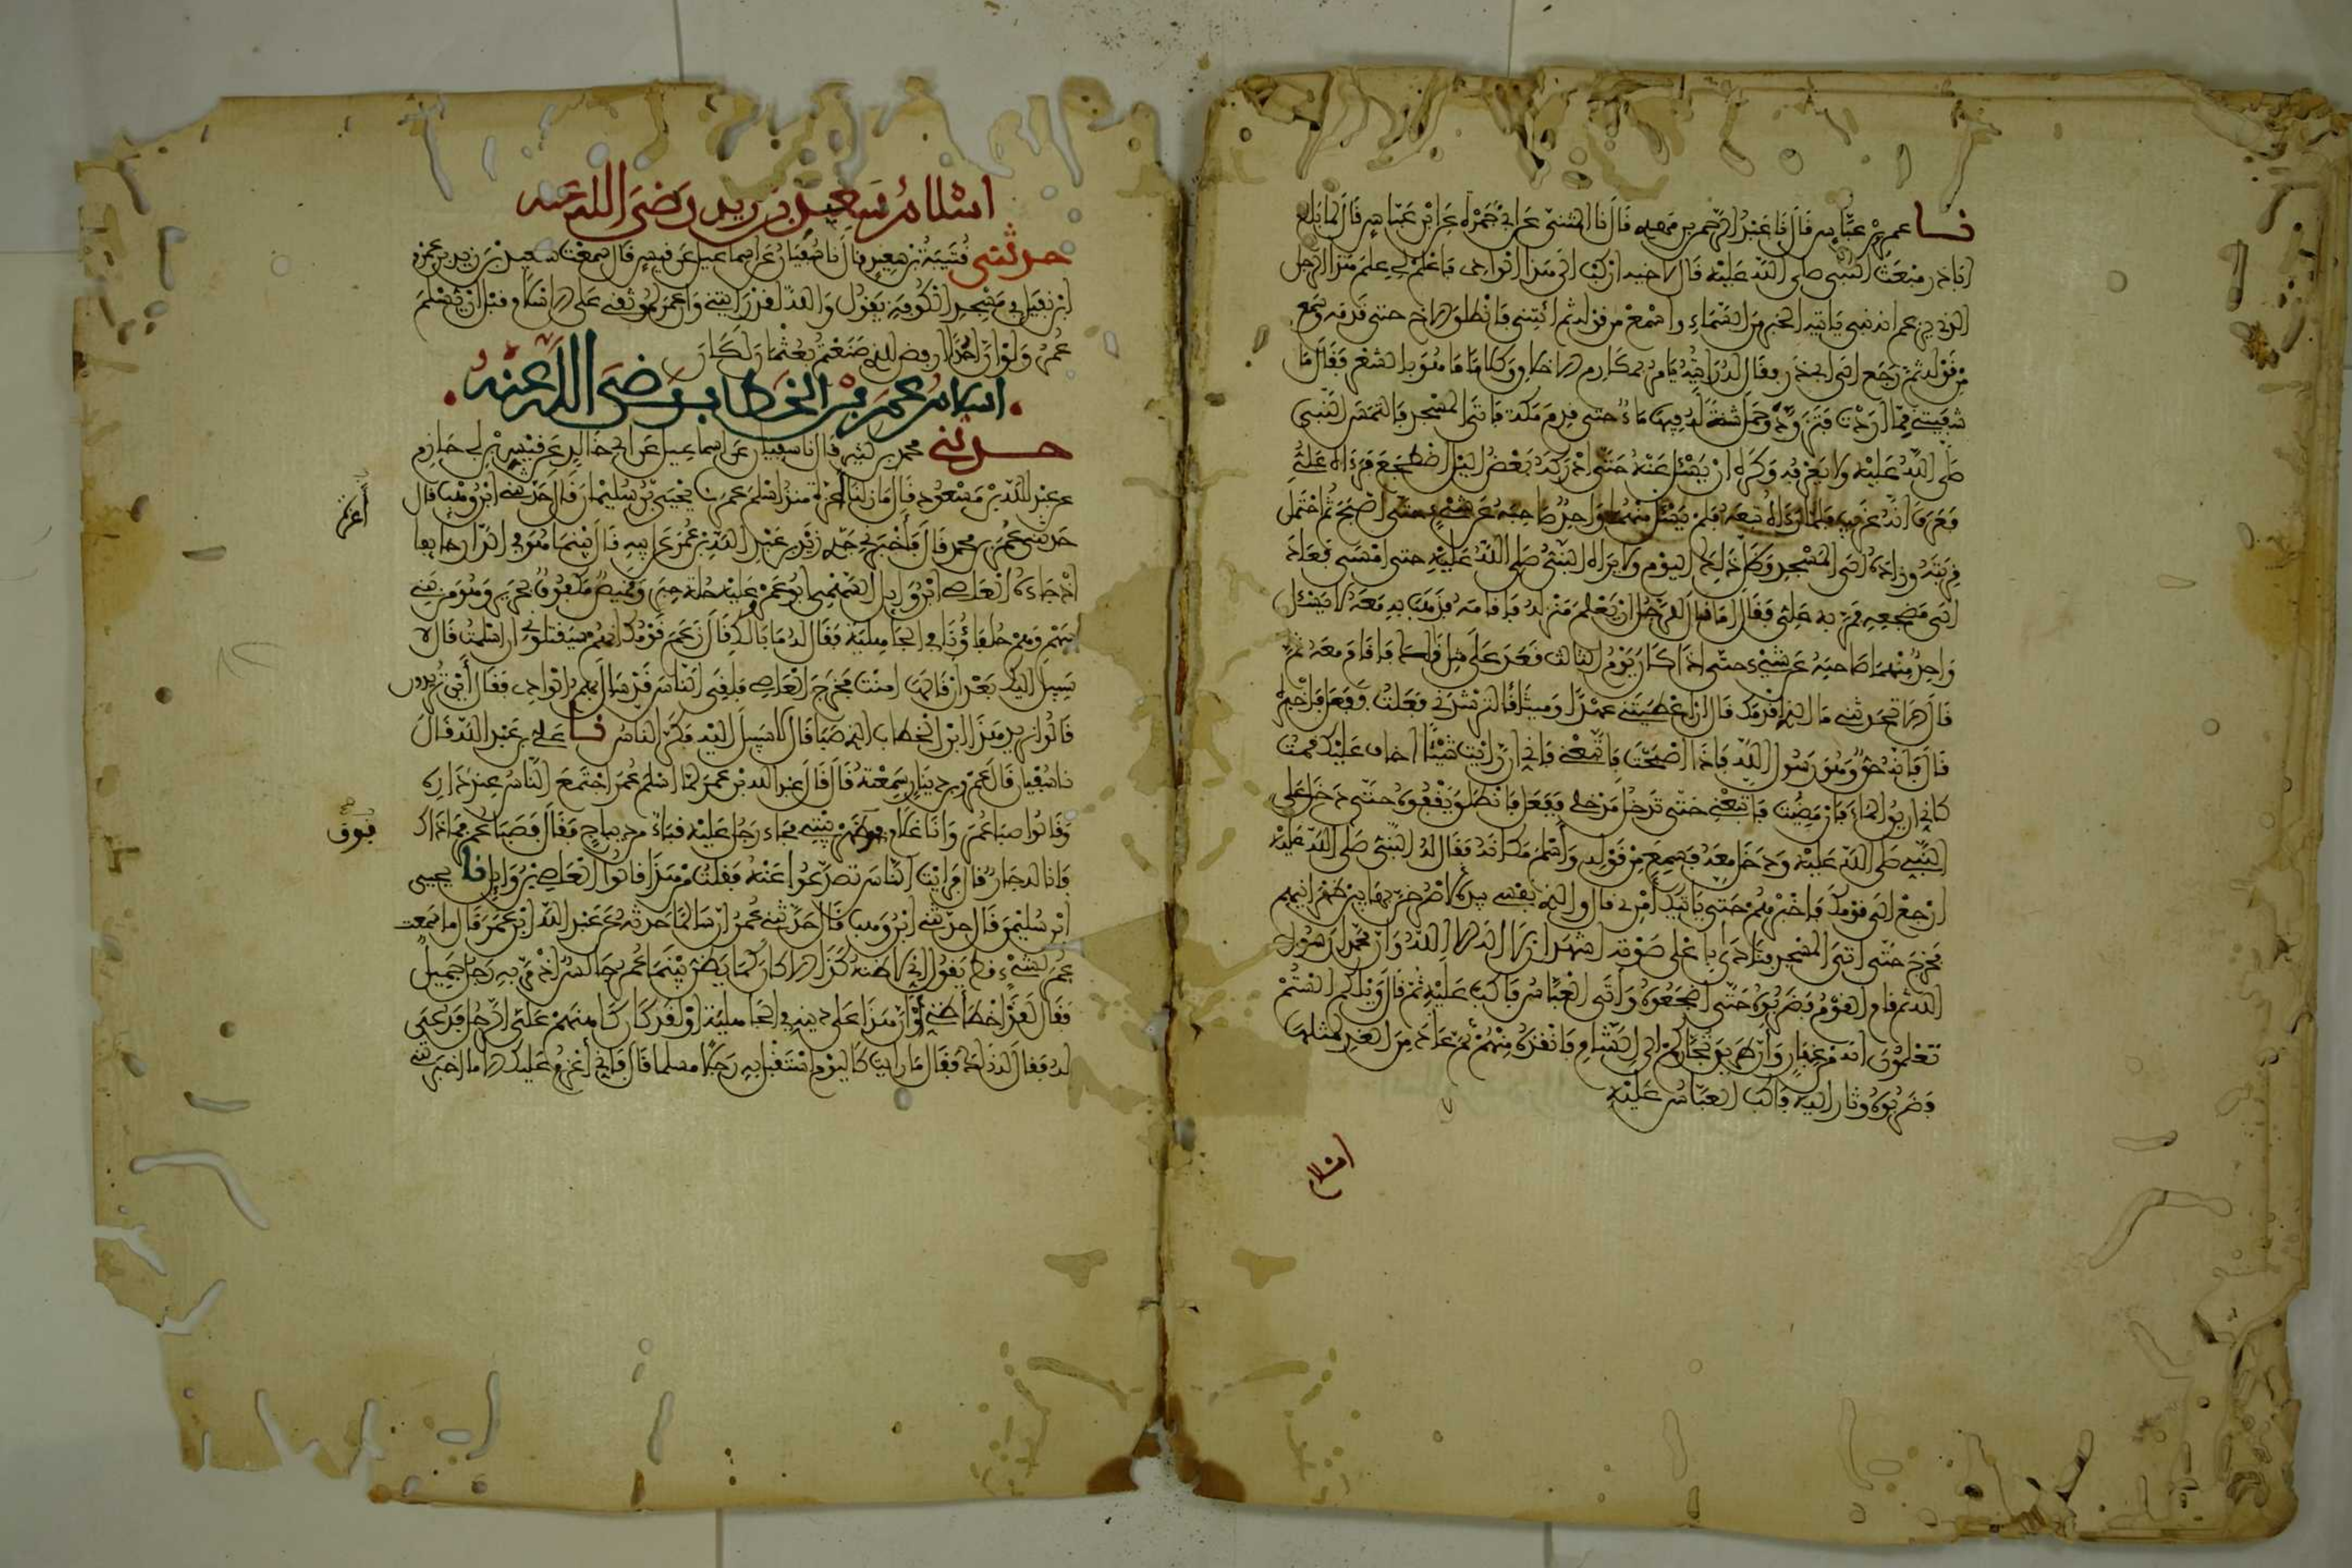 نا عمرو بن عباس قال نا عبد الرحمن بن مهدي قال نا المثنى عن ابي جمرة عن ابن عباس قال لما بلغ
ابا ذر مبعث النبي صلى الله عليه قال لاخيه اركب الى هذا الوادي فاعلم لي علم هذا الرجل
الذي يزعم انه نبي ياتيه الخبر من السماء واسمع من قوله ثم ائتني فانطلق الاخ حتى قدمه وسمع
من قوله ثم رجع الى ابي ذر فقال له رايته يامر بمكارم الاخلاق وكلاما ما هو بالشعر فقال ما
شفيتني مما اردت فتزود وحمل شنة له فيها ماء حتى قدم مكة فاتى المسجد فالتمس النبي
صلى الله عليه ولا يعرفه وكره ان يسئل عنه حتى ادركه بعض الليل اضطجع فرءاه علي
فعرف انه غريب فلما رءاه تبعه فلم يسئل منهما واحد صاحبه عن شيء حتى اصبح ثم احتمل
قربته وزاده الى المسجد وظل ذلك اليوم ولا يراه النبي صلى الله عليه حتى امسى فعاد
الى مضجعه فمر به علي فقال اما نال للرجل ان يعلم منزله فاقامه فذهب به معه لا يسئل
واحد منهما صاحبه عن شيء حتى اذا كان يوم الثالث فعد على مثل ذلك فاقام معه ثم
قال الا تحدثني ما الذي اقدمك قال ان اعطيتني عهدا وميثاقا لترشدني فعلت ففعل فاخبره
قال فانه حق وهو رسول الله فاذا اصبحت فاتبعني فاني ان رايت شيئا اخاف عليك قمت
كاني اريق الماء فان مضيت فاتبعني حتى تدخل مدخلي ففعل فانطلق يقفوه حتى دخل على
النبي صلى الله عليه ودخل معه فسمع من قوله واسلم مكانه فقال له النبي صلى الله عليه
ارجع الى قومك فاخبرهم حتى ياتيك امري قال والذي نفسي بيده لاصرخن بها بين ظهرانيهم
فخرج حتى اتى المسجد فنادى باعلى صوته اشهد ان لا اله الا الله وان محمدا رسول
الله ثم قام القوم فضربوه حتى اضجعوه واتى العباس فاكب عليه ثم قال ويلكم الستم
تعلمون انه من غفار وان طريق تجاركم الى الشام فانقذه منهم ثم عاد من الغد لمثلها
فضربوه وثاروا اليه فاكب العباس عليه
اسلام
اسلام سعيد بن زيد رضي الله عنه
حدثني قتيبة بن سعيد قال نا سفيان عن اسماعيل عن قيس قال سمعت سعيد بن زيد بن عمرو
ابن نفيل في مسجد الكوفة يقول والله لقد رايتني وان عمر لموثقي على الاسلام قبل ان يسلم
عمر ولو ان احدا ارفض للذي صنعتم بعثمان لكان
اسلام عمر بن الخطاب رضي الله عنه
حدثني محمد بن كثير قال نا سفيان عن اسماعيل عن ابي خالد عن قيس بن ابي حازم
عن عبد الله بن مسعود قال ما زلنا اعزة منذ اسلم عمر نا يحيى بن سليمان قال حدثني ابن وهب قال
حدثني عمر بن محمد قال فاخبرني جدي زيد بن عبد الله بن عمر عن ابيه قال بينما هو في الدار خايفا
اذ جاءه العاصي ابن وايل السهمي ابو عمرو عليه حلة حبر وقميص مكفوف بحرير وهو من بني
سهم وهم حلفاؤنا في الجاهلية فقال له ما بالك قال زعم قومك انهم سيقتلوني ان اسلمت قال لا
سبيل اليك بعد ان قالها امنت فخرج العاصي فلقي الناس قد سال بهم الوادي فقال اين تريدون
قالوا نريد هذا ابن الخطاب الذي صبا قال لا سبيل اليه فكر الناس نا علي بن عبد الله قال
نا سفيان قال عمرو بن دينار سمعته قال قال عبد الله بن عمر لما اسلم عمر اجتمع الناس عند داره
وقالوا صبا عمر وانا غلام فوق ظهر بيتي فجاء رجل عليه قباء من ديباج فقال قد صبا عمر فما ذاك
فانا له جار قال فرايت الناس تصدعوا عنه فقلت من هذا قالوا العاصي بن وايل نا يحيى
ابن سليمن قال حدثني ابن وهب قال حدثني عمر ان سالما حدثه عن عبد الله ابن عمر قال ما سمعت
عمر لشيء قط يقول اني لاظنه كذا الا كان كما يظن بينما عمر جالس اذ مر به رجل جميل
فقال لقد اخطا ظني او ان هذا على دينه في الجاهلية او لقد كان كاهنهم علي الرجل فدعي
له فقال له ذلك فقال ما رايت كاليوم استقبل به رجلا مسلما قال فاني اعزم عليك الا ما اخبرتني
اعزة
فوق